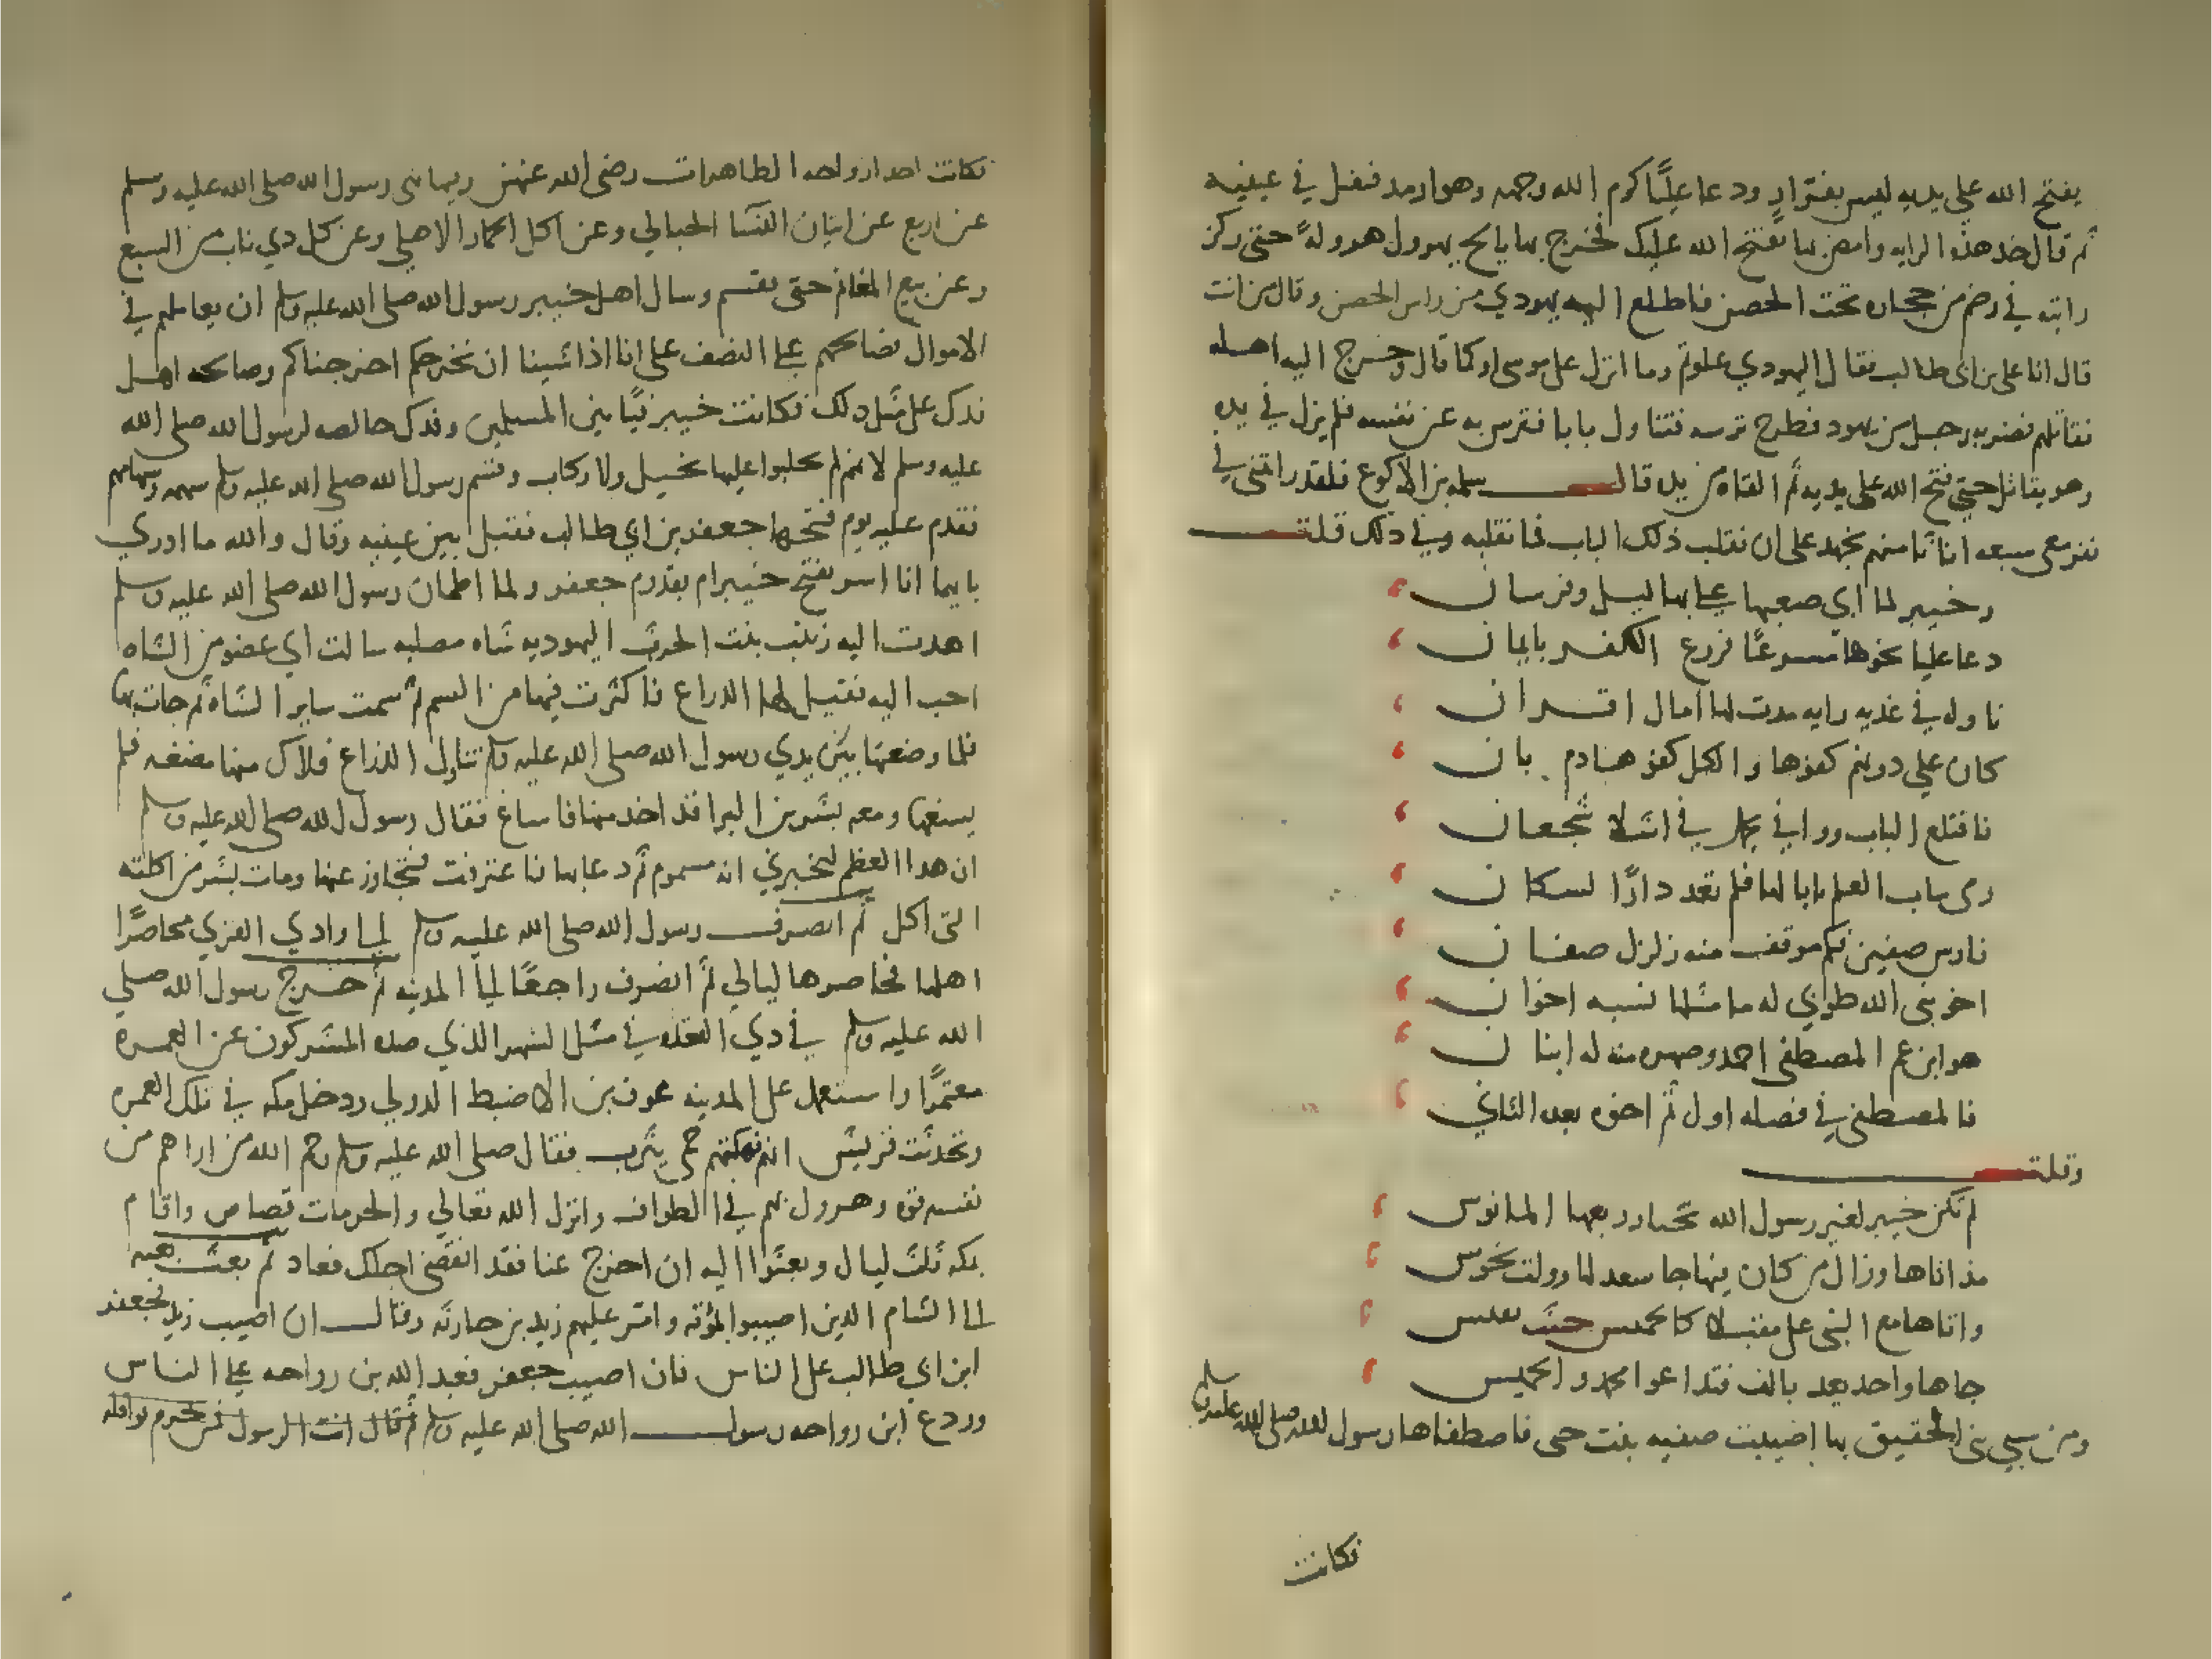 يفتح الله على يديه ليس بفرار ودعا عليًا كرم الله وجهه وهو ارمد فتفل في عينيه
ثم قال خذ هذه الرايه وامض بها يفتح الله عليك فخرج بها يانح يهرول هرولةً حتى ركز
رايته في رضم من حجاره تحت الحصن فاطلع اليه يهودي من راس الحصن وقال من انت
قال انا علي بن ابي طالب فقال اليهودي علوتم وما انزل على موسى او كما قال وخرج اليه اهله
فقاتلهم فضربه رجل من يهود فطرح ترسه فتناول بابا فترس به عن نفسه فلم يزل في يده
وهو يقاتل حتى فتح الله على يديه ثم القاه من يده قال سلمه بن الاكوع فلقد رايتني في
نفر معي سبعه انا ثامنهم نجهد على ان نقلب ذلك الباب فما نقلبه وفي ذلك قلت
وخيبر لما ابي صعبها على بهاليل وفرسان
دعا عليا نحوها مسرعًا فروع الكفر بايمان
ناوله في غديه رايه مدت لها امال اقران
كان علي دونهم كفوها والكل كفو هادم بان
فاقتلع الباب ووافي بهم في اشلا شجعان
رمى بباب العلم بابا لها فلم تعد دارًا لسكان
فارس صفين فكم موقف منه زلزل صفان
اخو نبي الله طوبي له ما مثلها نسبه اخوان
هو ابن عم المصطفى احمد وصهره منه له ابنان
فالمصطفى في فضله اول ثم اخوه بعده الثاني
وقلت
لم تكن خيبر لغير رسول الله تختار ربعها المانوس
مذ اتاها وزال من كان فيها جا سعد لها وولت نحوس
واتاها مع النبي علي مقبلا كالخميس حيث يعبس
جاها واحد يعد بالف فتداعوا محمد والخميس
ومن سبي بني الحقيق بها اصيبت صفيه بنت حيى فاصطفاها رسول الله صلى الله عليه وسلم
فكانت
فكانت احد ازواجه الطاهرات رضي الله عنهن وفيها نهى رسول الله صلى الله عليه وسلم
عن اربع عن اتيان النسا الحبالي وعن اكل الحمار الاهلي وعن كل دي ناب من السبع
وعن بيع المغانم حتى تقسم وسال اهل خيبر رسول الله صلى الله عليه وسلم ان يعاملهم في
الاموال فصالحهم على النصف على انا اذا شينا ان نخرجكم اخرجناكم وصالحه اهل
فدك على مثل دلك فكانت خيبر فيًا بين المسلمين وفدك خالصه لرسول الله صلى الله
عليه وسلم لانهم لم يجلبوا عليها بخيل ولا ركاب وقسم رسول الله صلى الله عليه وسلم سهمه وسهامهم
فقدم عليه يوم فتحها جعفر بن ابي طالب فقبل بين عينيه وقال والله ما ادري
بايهما انا اسر بفتح خيبر ام بقدوم جعفر ولما اطمان رسول الله صلى الله عليه وسلم
اهدت اليه زينب بنت الحرث اليهوديه شاه مصليه سالت اي عضو من الشاه
احب اليه فقيل لها الدراع فاكثرت فيها من السم ثم سمت ساير الشاه ثم جات بها
فلما وضعتها بين يدي رسول الله صلى الله عليه وسلم تناول الذراع فلاك منها مضغه فلم
يسغها ومعه بشر بن البرا قد اخد منها فاساغ فقال رسول الله صلى الله عليه وسلم
ان هدا العظم ليخبرني انه مسموم ثم دعا بها فاعترفت فتجاوز عنها ومات بشر من اكلته
التي اكل ثم انصرف رسول الله صلى الله عليه وسلم الى وادي القري محاصرًا
اهلها فحاصرها ليالي ثم انصرف راجعًا الى المدينه ثم خرج رسول الله صلى
الله عليه وسلم في دي القعده في مثل الشهر الذي صده المشركون عن العمره
معتمرًا واستعمل على المدينه عوف بن الاضبط الدولي ودخل مكه في تلك العمره
وتحدثت قريش انهم نهكتهم حمى يثرب فقال صلى الله عليه وسلم رحم الله من اراهم من
نفسه قوه وهرول بهم في الطواف وانزل الله تعالي والحرمات قصاص واقام
بمكه ثلث ليال وبعثوا اليه ان اخرج عنا فقد انقضى اجلك فعاد ثم بعث بعثه
الى الشام الدين اصيبوا بمؤته وامر عليهم زيد بن حارثه وقال ان اصيب زيد فجعفر
ابن ابي طالب على الناس فان اصيب جعفر فعبد الله بن رواحه على الناس
وودع ابن رواحه رسول الله صلى الله عليه وسلم ثم قال انت الرسول فمن يحرم نوافله